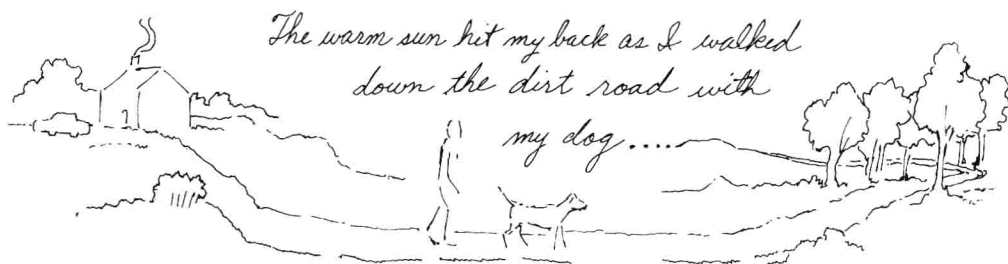 The warm sun hit my back as I walked
down the dirt road with
my dog.....